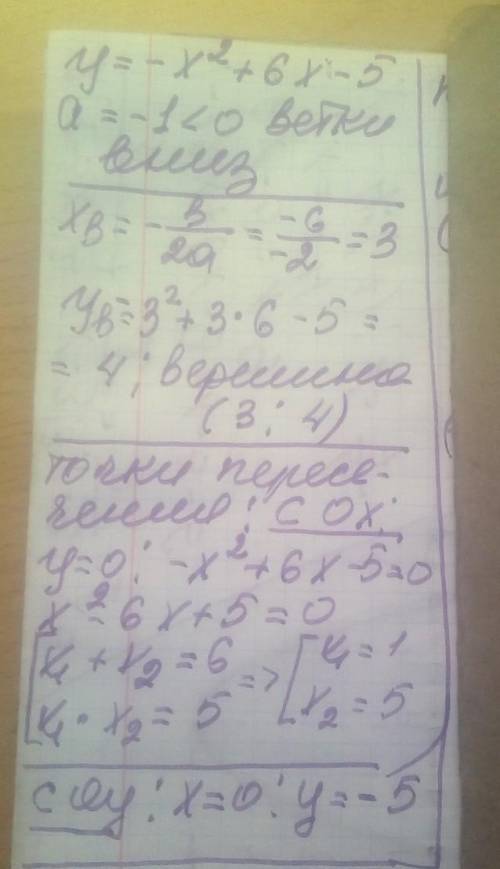 y = -x² + 6x - 5
a = -1 < 0 ветки
вниз
xв = -в/2a = -6/-2 = 3
yв = 3² + 3·6 - 5 =
= 4; вершина
(3; 4)
точки пересе-
чения: с Ox:
y=0: -x² + 6x - 5 = 0
x² - 6x + 5 = 0
[x₁ + x₂ = 6 => [x₁ = 1
[x₁ · x₂ = 5 [x₂ = 5
с Oy: x=0: y = -5